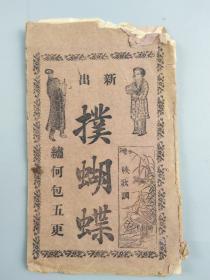 新出
撲蝴蝶
繡何包五更
映歌調